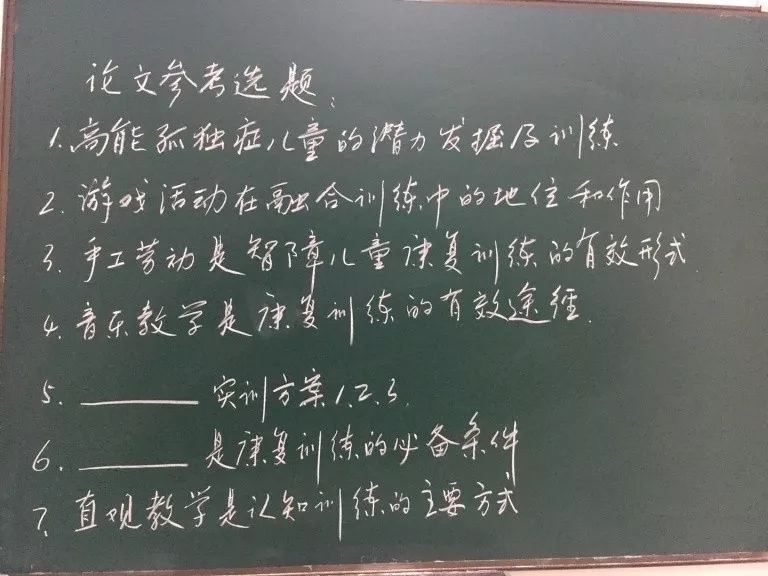 论文参考选题：
1. 高能孤独症儿童的潜力发掘及训练
2. 游戏活动在融合训练中的地位和作用
3. 手工劳动是智障儿童康复训练的有效形式
4. 音乐教学是康复训练的有效途径.
5. ______ 实训方案1.2.3.
6. ______ 是康复训练的必备条件
7. 直观教学是认知训练的主要方式